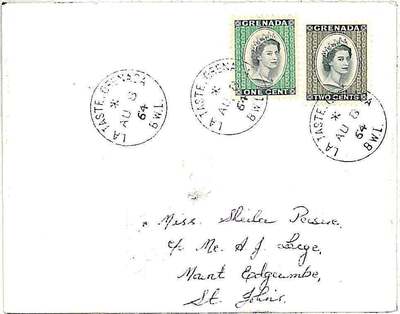 GRENADA
ONE CENT
GRENADA
TWO CENTS
LA TASTE. GRENADA
* AU 6 64
B.W.I.
LA TASTE. GRENADA
* AU 6 64
B.W.I.
LA TASTE. GRENADA
* AU 6 64
B.W.I.
Miss. Sheila
c/o Mr. A J
Mount Edgcumbe,
St. Johns.